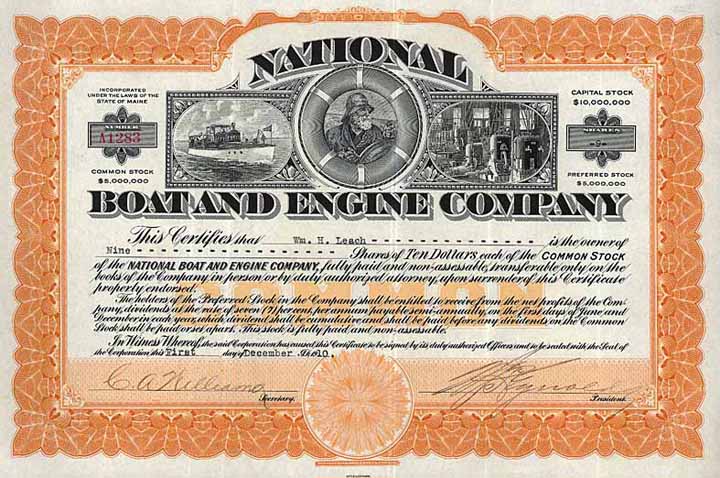 NATIONAL
INCORPORATED
UNDER THE LAWS OF THE
STATE OF MAINE
CAPITAL STOCK
$10,000,000
NUMBER
A1283
SHARES
-9-
COMMON STOCK
$5,000,000
PREFERRED STOCK
$5,000,000
BOAT AND ENGINE COMPANY
This Certifies that Wm. H. Leach is the owner of
Nine Shares of Ten Dollars each of the COMMON STOCK
of the NATIONAL BOAT AND ENGINE COMPANY, fully paid and non-assessable, transferable only on the
books of the Company in person or by duly authorized attorney, upon surrender of this Certificate
properly endorsed.
The holders of the Preferred Stock in the Company shall be entitled to receive from the net profits of the Com-
pany, dividends at the rate of seven (7) percent, per annum payable semi-annually, on the first days of June and
December in each year, which dividend shall be cumulative and shall be paid before any dividends on the Common
Stock shall be paid or set apart. This stock is fully paid and non-assessable.
In Witness Whereof, the said Corporation has caused this Certificate to be signed by its duly authorized Officers and to be sealed with the Seal of
the Corporation this First day of December A.D. 1910.
C. A. Williams
Secretary.
President.